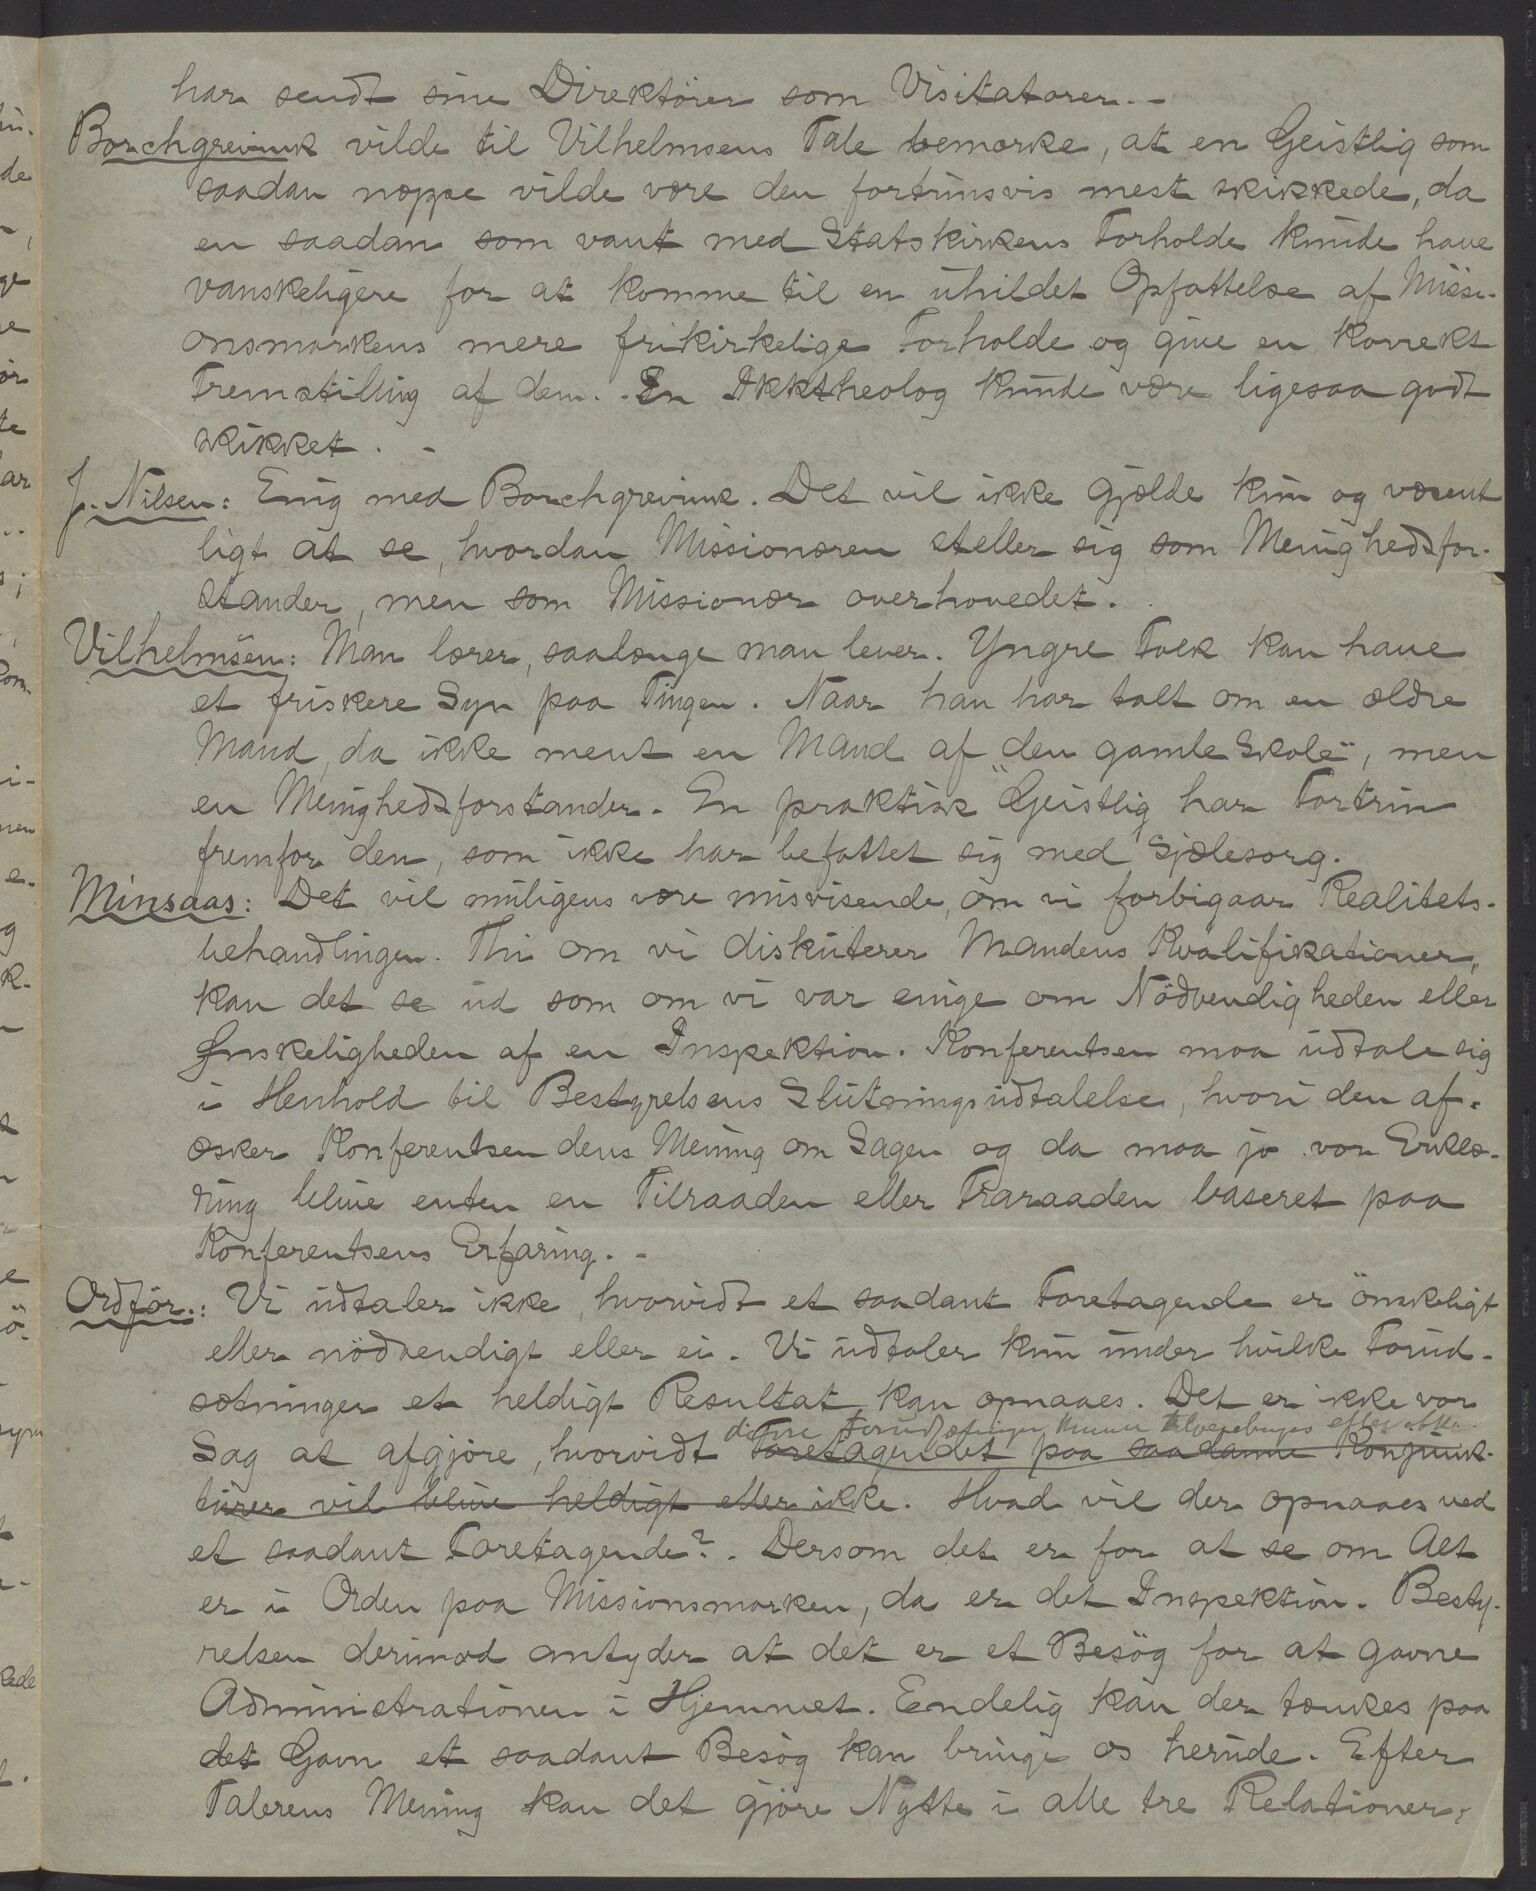 har sendt sine Direktörer som Visitatorer. -
Borchgrevink vilde til Vilhelmsens Tale bemærke, at en Geistlig som
saadan næppe vilde være den fortrinsvis mest skikkede, da
en saadan som vant med Statskirkens Forholde kunde have
vanskeligere for at komme til en uhildet Opfattelse af Missi-
onsmarkens mere frikirkelige Forholde og give en korrekt
Fremstilling af dem. En Ikktheolog kunde være ligesaa godt
skikket. -
J. Nilsen: Enig med Borchgrevink. Det vil ikke gjælde kun og væsent
ligt at se, hvordan Missionæren steller sig som Menighedsfor-
stander, men som Missionær overhovedet.
Vilhelmsen: Man lærer, saalænge man lever. Yngre Folk kan have
et friskere Syn paa Tingen. Naar han har talt om en ældre
Mand, da ikke ment en Mand af „den gamle Skole“, men
en Menighedsforstander. En praktisk Geistlig har Fortrin
fremfor den, som ikke har befattet sig med Sjælesorg.
Minsaas: Det vil muligens være misvisende, om vi forbigaar Realitets-
behandlingen. Thi om vi diskuterer Mandens Kvalifikationer,
kan det se ud som om vi var enige om Nödvendigheden eller
Ønskeligheden af en Inspektion. Konferentsen maa udtale sig
i Henhold til Bestyrelsens Slutningsudtalelse, hvori den af-
æsker Konferentsen dens Mening om Sagen og da maa jo vor Erklæ-
ring blive enten en Tilraaden eller Fraraaden baseret paa
Konferentsens Erfaring. -
Ordför.: Vi udtaler ikke, hvorvidt et saadant Foretagende er önskeligt
eller nödvendigt eller ei. Vi udtaler kun under hvilke Forud-
sætninger et heldigt Resultat kan opnaaes. Det er ikke vor
disse Forudsætninger kunne tilveiebringes eller
Sag at afgjöre, hvorvidt Foretagendet paa saadanne Konjunk-
turer vil blive heldigt eller ikke. Hvad vil der opnaaes ved
et saadant Foretagende?. Dersom det er for at se om Alt
er i Orden paa Missionsmarken, da er det Inspektion. Besty-
relsen derimod antyder at det er et Besög for at gavne
Administrationen i Hjemmet. Endelig kan der tænkes paa
det Gavn et saadant Besög kan bringe os herude. Efter
Talerens Mening kan det gjöre Nytte i alle tre Relationer,